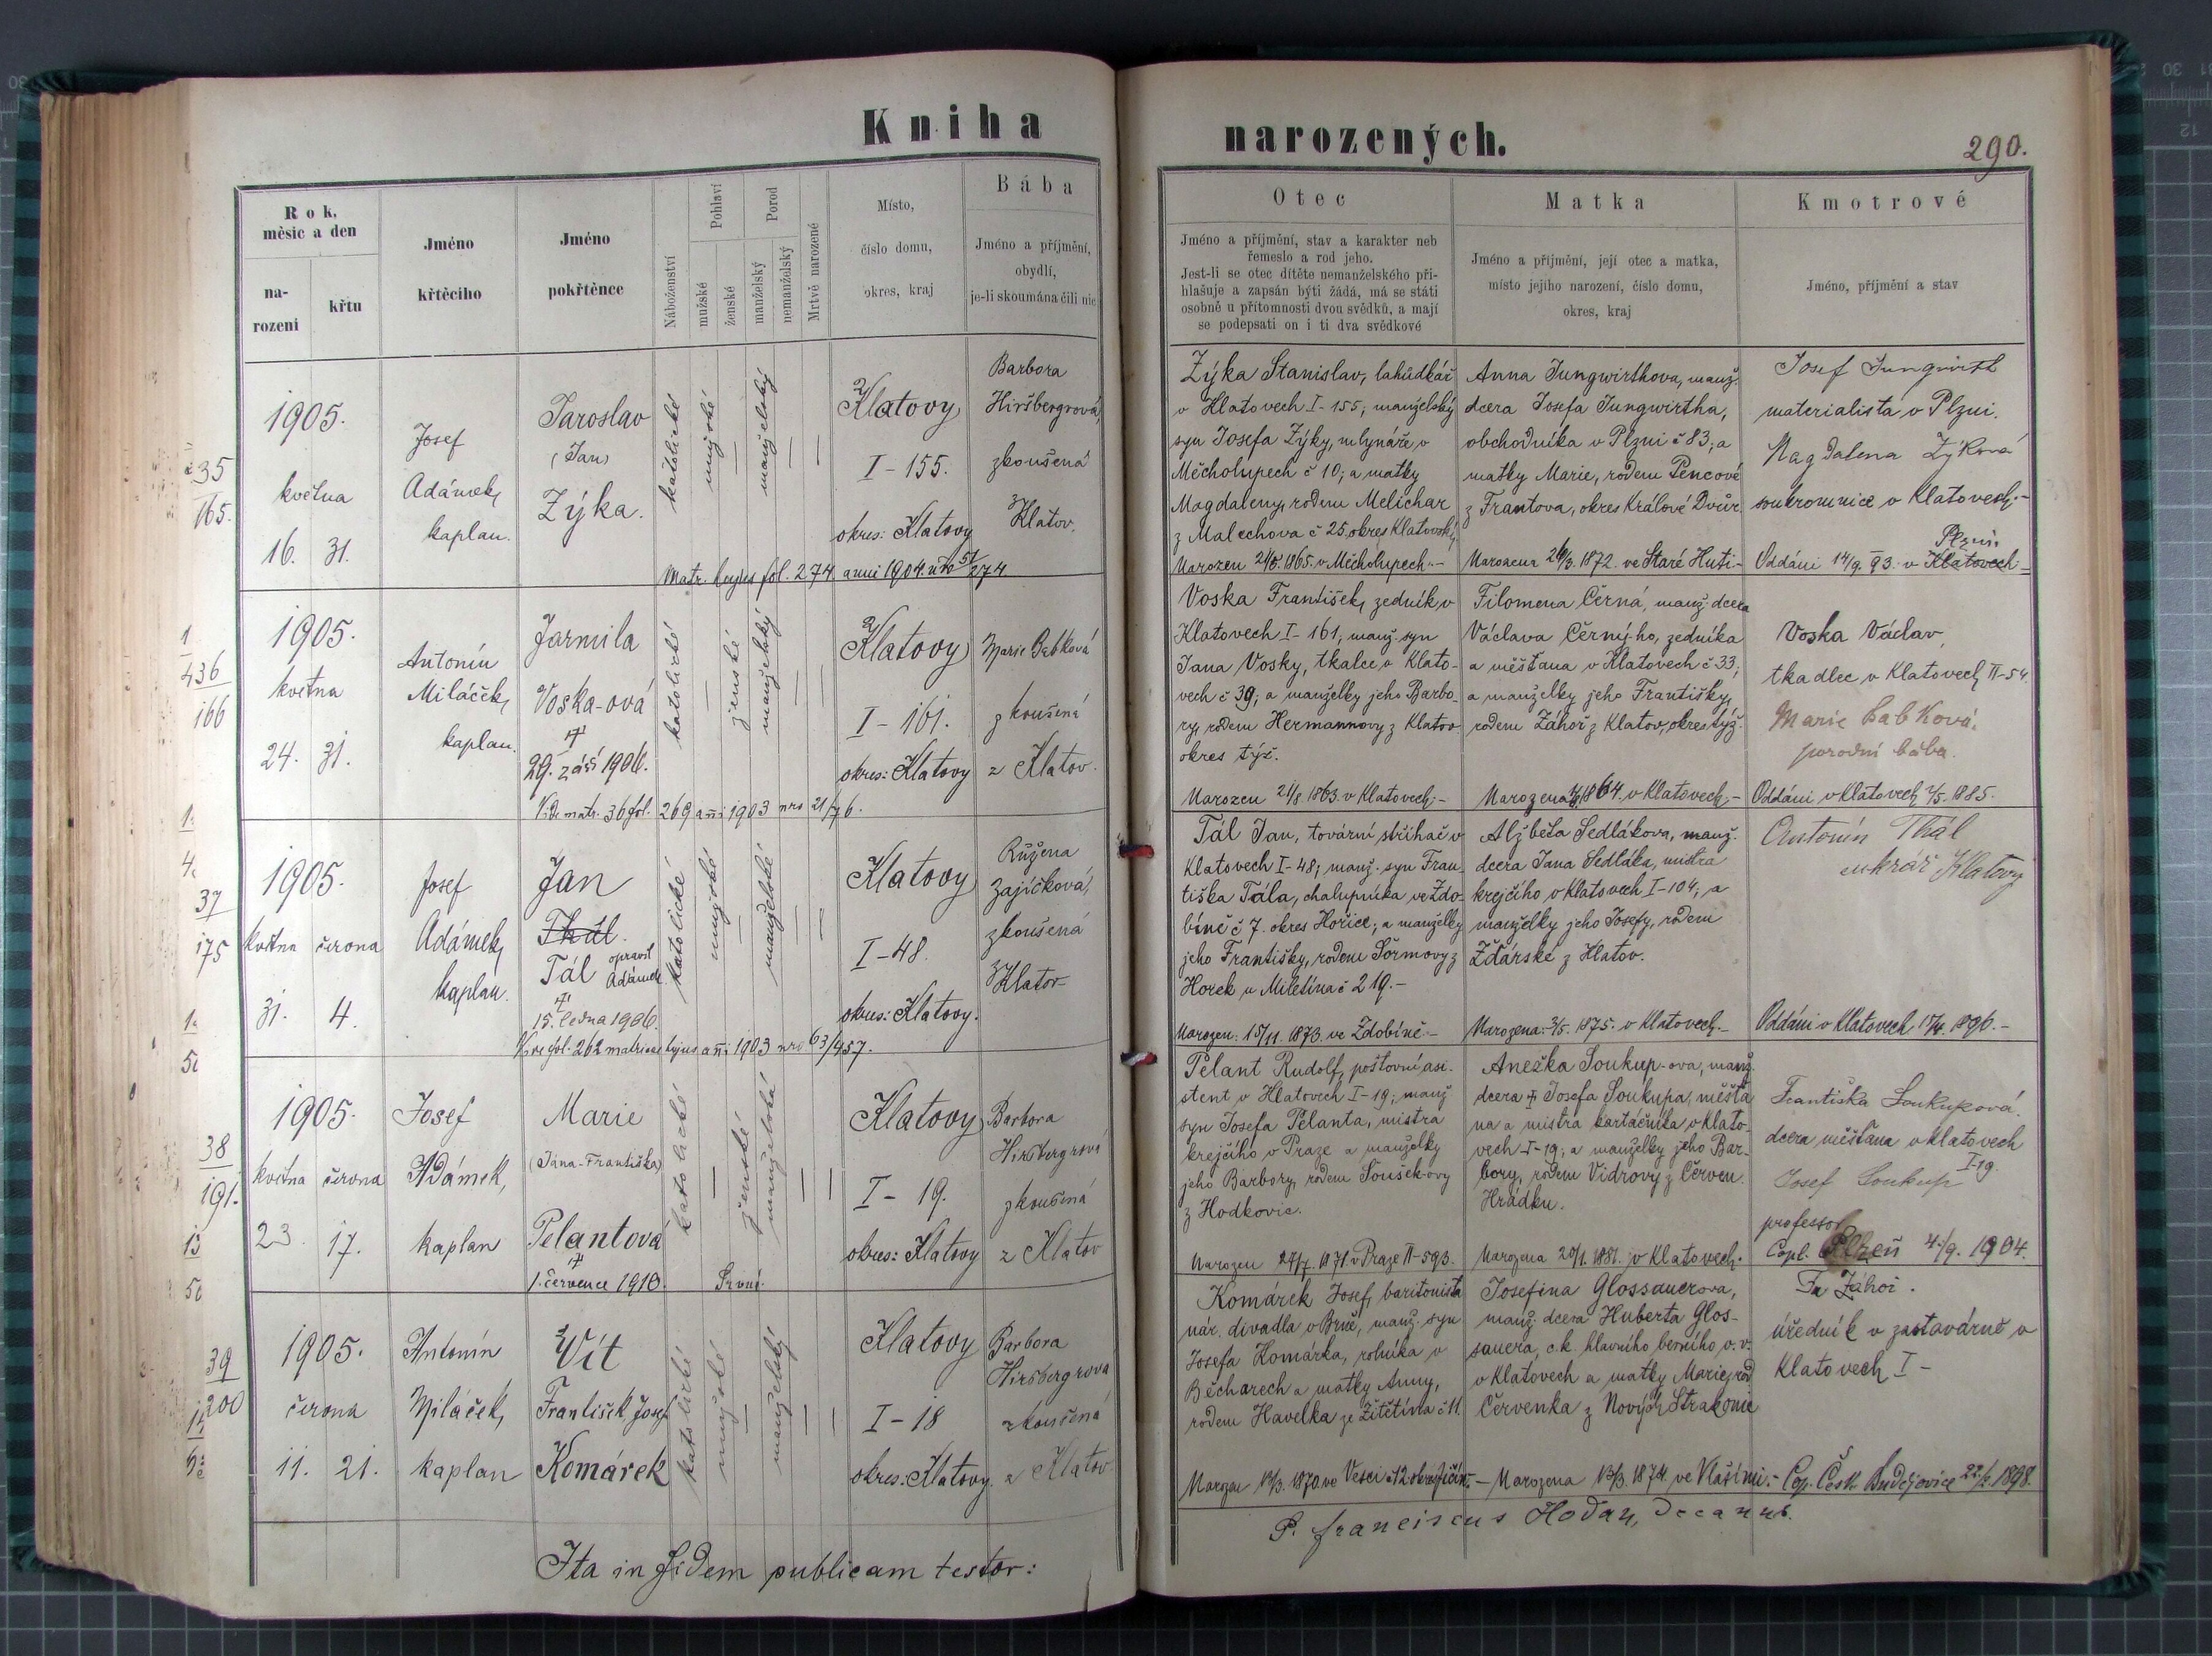 Kniha narozených.
290.
Rok, měsíc a den
narození
křtu
Jméno křtěcího
Jméno pokřtěnce
Náboženství
Pohlaví
mužské
ženské
Porod
manželský
nemanželský
Mrtvě narozené
Místo,
číslo domu,
okres, kraj
Bába
Jméno a příjmění,
obydlí,
je-li skoumána čili nic
Otec
Jméno a příjmění, stav a karakter neb
řemeslo a rod jeho.
Jest-li se otec dítěte nemanželského při-
hlašuje a zapsán býti žádá, má se státi
osobně u přítomnosti dvou svědků, a mají
se podepsati on i ti dva svědkové
Matka
Jméno a příjmění, její otec a matka,
místo jejího narození, číslo domu,
okres, kraj
Kmotrové
Jméno, příjmění a stav
35
165.
1905.
května
16. 31.
Josef
Adámek,
kaplan.
Jaroslav
(Jan)
Zýka.
katolické
mužské
manželský
Klatovy
I-155.
okres: Klatovy
Barbora
Hiršbergrová,
zkoušená
z Klatov.
Matr. hujus fol. 274 anni 1904. nro 51/274
Zýka Stanislav, lahůdkář
v Klatovech I-155; manželský
syn Josefa Zýky, mlynáře v
Měcholupech č 10; a matky
Magdaleny, rodem Melichar
z Malechova č 25. okres Klatovský
Narozen 1865. v Měcholupech.-
Anna Jungwirthova, manž.
dcera Josefa Jungwirtha,
obchodníka v Plzni č 83; a
matky Marie, rodem Pencové
z Frantova, okres Králové Dvůr.
Narozena 1872. ve Staré Huti-
Josef Jungwirt
materialista v Plzni.
Magdalena Zýková
soukromnice v Klatovech.-
Plzni
Oddáni 14/9. 93. v Klatovech-
1
436
166
1905.
května
24. 31.
Antonín
Miláček,
kaplan.
Jarmila
Voska-ová
29. září 1906.
katolické
ženské
manželský
Klatovy
I-161.
okres: Klatovy
Marie Babková
zkoušená
z Klatov.
Vide matr. 36 fol. 269 anni 1903 nro 21/76.
Voska František, zedník v
Klatovech I-161, manž. syn
Jana Vosky, tkalce v Klato-
vech č 39; a manželky jeho Barbo-
ry, rodem Hermannovy z Klatov
okres týž.
Narozen 21/8 1863. v Klatovech.-
Filomena Černá, manž. dcera
Václava Černý-ho, zedníka
a měšťana v Klatovech č 33;
a manželky jeho Františky,
rodem Záhoř z Klatov, okres týž.
Narozena 1864. v Klatovech.-
Voska Václav,
tkadlec v Klatovech II-54.
Marie Babková.
porodní bába.
Oddáni v Klatovech 1885.
37
175
1905.
května června
31. 4.
Josef
Adámek,
kaplan.
Jan
Thál.
Tál opravil Adámek
15. ledna 1906.
katolické
mužské
manželské
Klatovy
I-48.
okres: Klatovy.
Růžena
Zajíčková,
zkoušená
z Klatov
Vide fol. 262 matricae hujus anni 1903 nro 63/457.
Tál Jan, tovární střihač v
Klatovech I-48; manž. syn Fran-
tiška Tála, chalupníka ve Zdo-
bíně č 7. okres Hořice; a manželky
jeho Františky, rodem Šormovy z
Horek u Miletína č 219.-
Narozen: 15/11. 1873. ve Zdobíně.-
Alžběta Sedlákova, manž.
dcera Jana Sedláka, mistra
krejčího v Klatovech I-104; a
manželky jeho Josefy, rodem
Žďárské z Klatov.
Narozena: 1875. v Klatovech.-
Antonín Thál
cukrář Klatovy
Oddáni v Klatovech 1896.-
38
191.
1905.
května června
23. 17.
Josef
Adámek,
kaplan
Marie
(Jana-Františka)
Pelantová
1. července 1910.
katolické
ženské
manželské
První.
Klatovy
I-19.
okres: Klatovy
Barbora
Hirsbergrová
zkoušená
z Klatov
Pelant Rudolf, poštovní asi-
stent v Klatovech I-19; manž
syn Josefa Pelanta, mistra
krejčího v Praze a manželky
jeho Barbory, rodem Soušek-ovy
z Hodkovic.
Narozen 1871. v Praze II-593.
Anežka Soukup-ova, manž.
dcera Josefa Soukupa, měšťa
na a mistra kartáčníka v Klato-
vech I-19; a manželky jeho Bar-
bory, rodem Vidrovy z Červen.
Hrádku.
Narozena 1881. v Klatovech.
Františka Soukupová.
dcera měšťana v Klatovech
I-19.
Josef Soukup
professor
Copl. Plzeň 4./9. 1904.
39
200
1905.
června
11. 21.
Antonín
Miláček,
kaplan
Vít
František Josef
Komárek
katolické
mužské
manželský
Klatovy
I-18
okres: Klatovy.
Barbora
Hirsbergrova
zkoušená
z Klatov.
Komárek Josef, baritonista
nár. divadla v Brně, manž. syn
Josefa Komárka, rolníka v
Běcharech a matky Anny,
rodem Havelka ze Žitětína č 11.
Narozen 1870 ve Vesci č 12
Josefina Glossauerova,
manž. dcera Huberta Glos-
sauera, c.k. hlavního berního v.v.
v Klatovech a matky Marie, rod
Červenka z Nových Strakonic
Narozena 1874 ve Vlašimi.-
Fr Záhoř.
úředník v zastavárně v
Klatovech I-
Cop. Česk Budějovice 1898.
Ita in fidem publicam testor:
P. Franciscus Hodan, decanus.